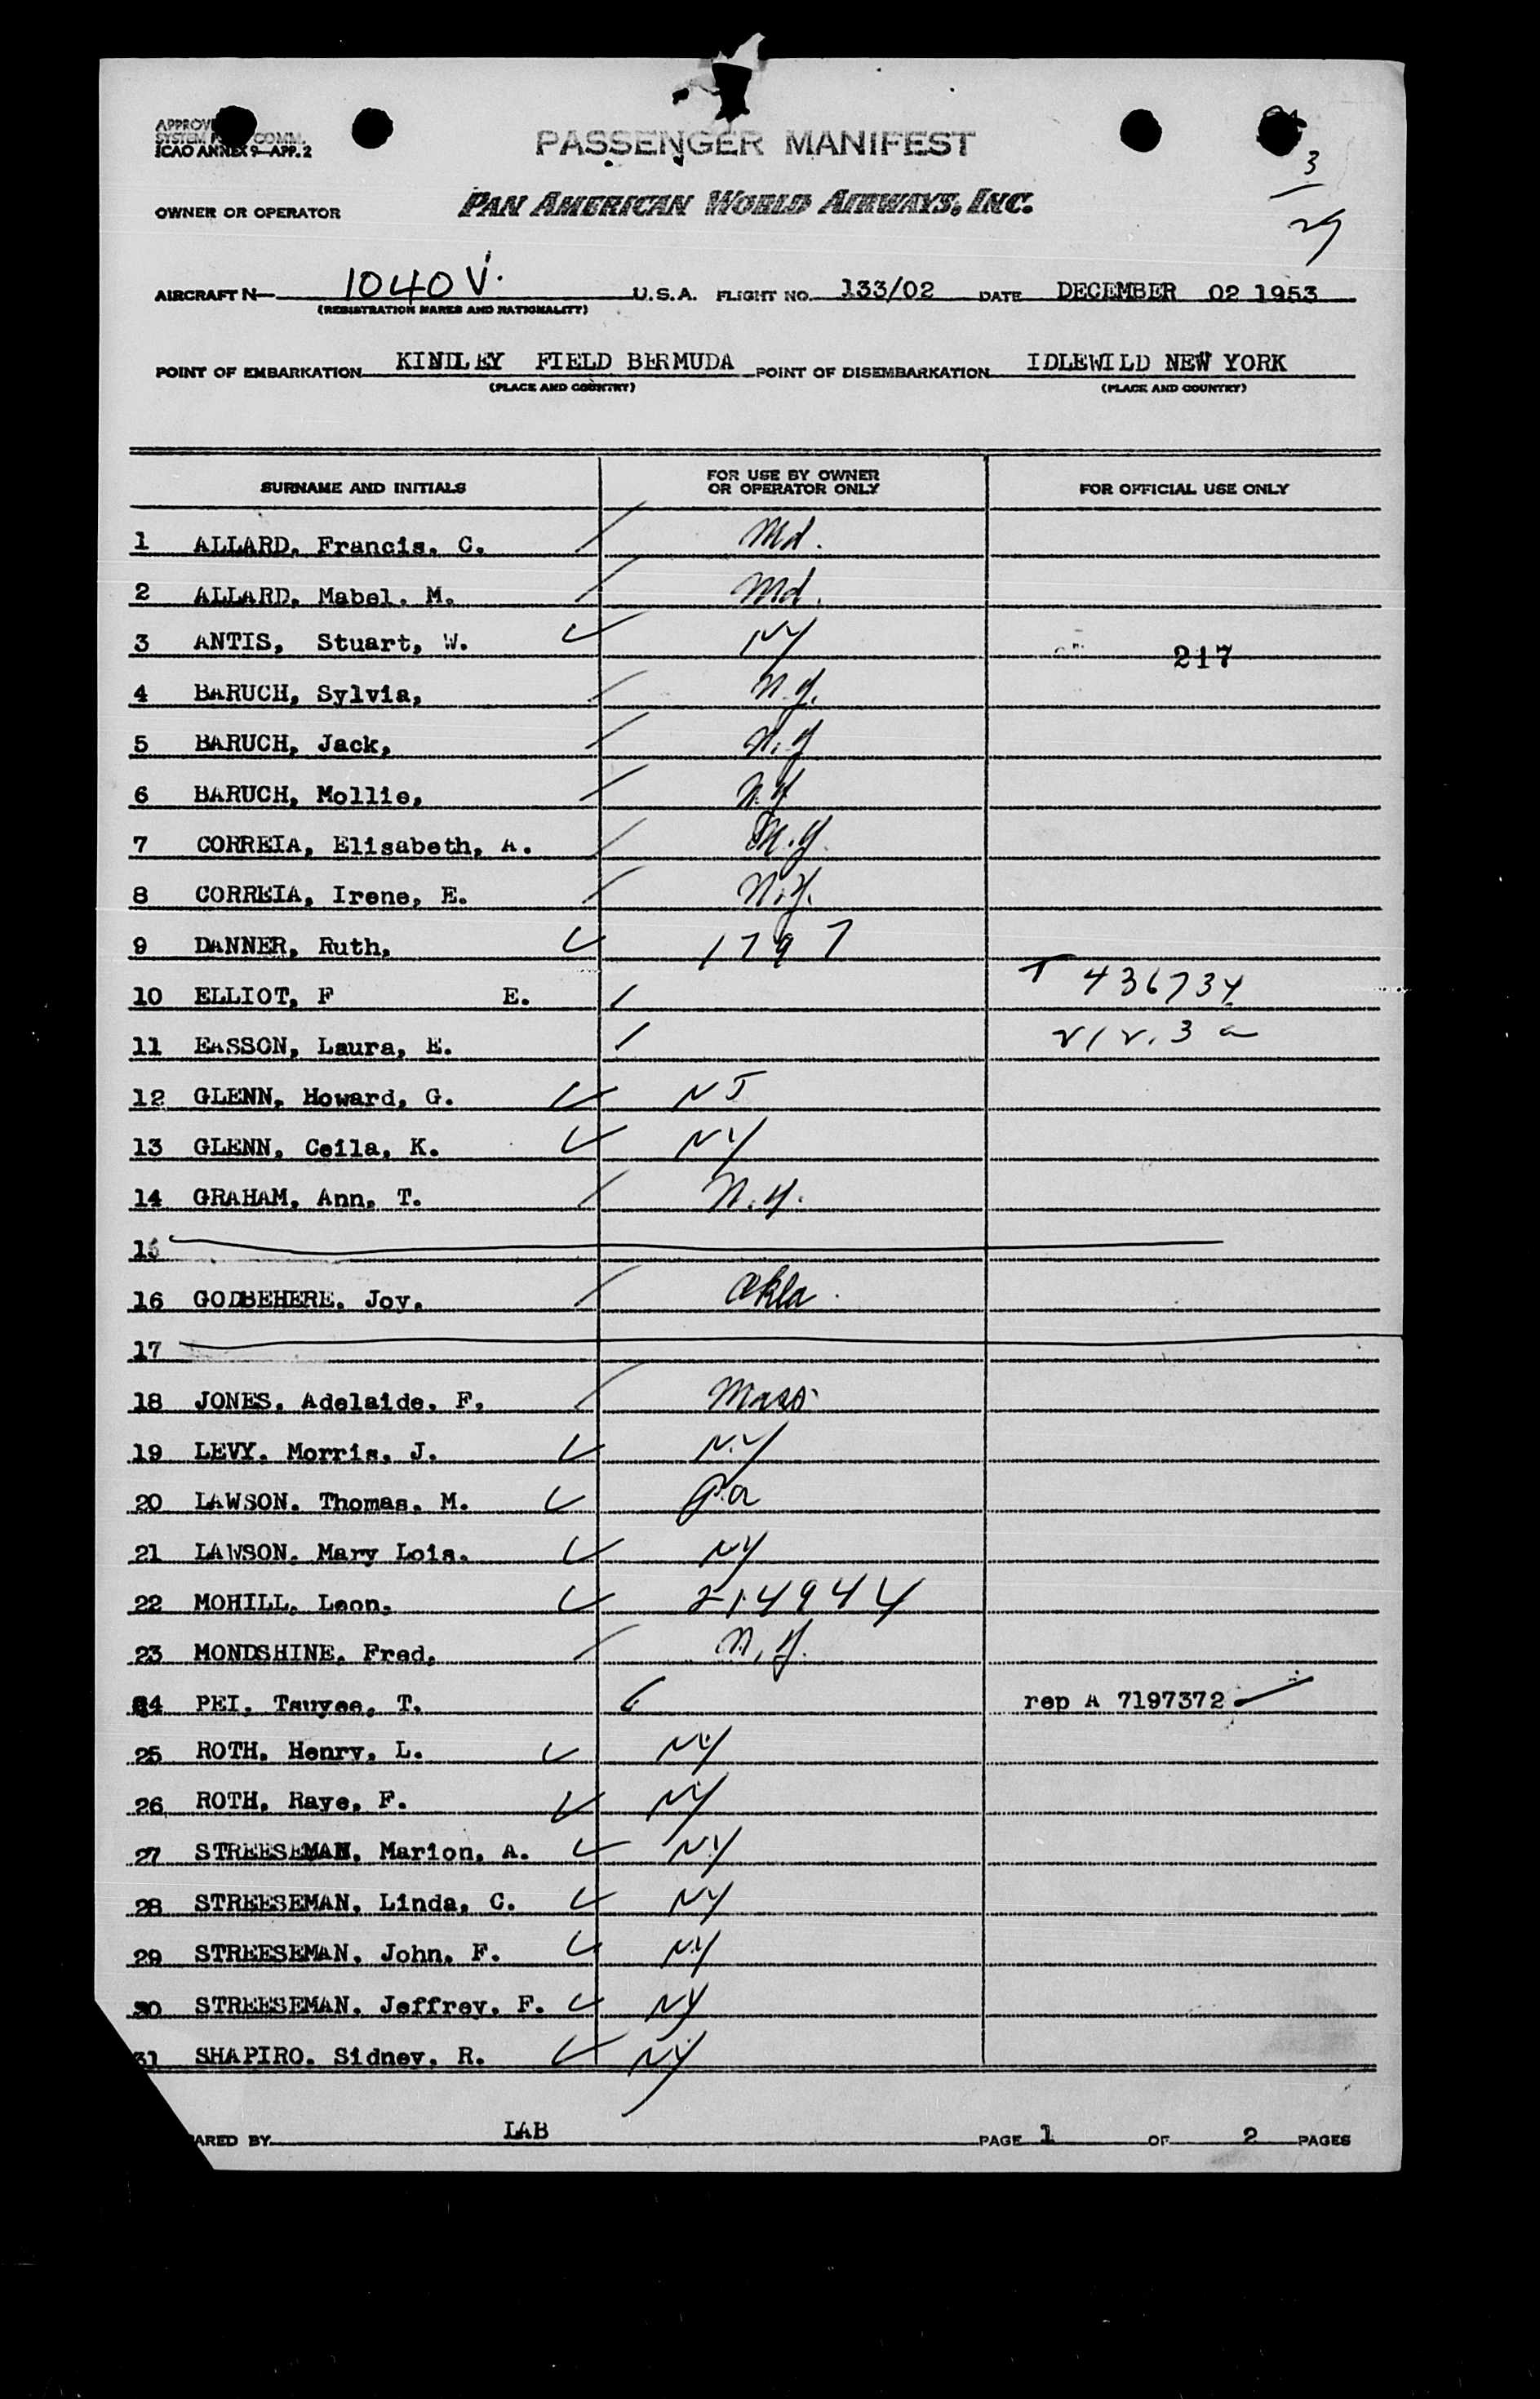 PASSENGER MANIFEST
ICAO ANNEX 9—APP. 2
3
29
OWNER OR OPERATOR PAN AMERICAN WORLD AIRWAYS, INC.
AIRCRAFT N— 1040V. U.S.A. FLIGHT NO. 133/02 DATE DECEMBER 02 1953
(REGISTRATION MARKS AND NATIONALITY)
POINT OF EMBARKATION KINDLEY FIELD BERMUDA POINT OF DISEMBARKATION IDLEWILD NEW YORK
(PLACE AND COUNTRY) (PLACE AND COUNTRY)
SURNAME AND INITIALS FOR USE BY OWNER OR OPERATOR ONLY FOR OFFICIAL USE ONLY
1 ALLARD, Francis, C. Md.
2 ALLARD, Mabel. M. Md.
3 ANTIS, Stuart, W. NY 217
4 BARUCH, Sylvia, N.Y.
5 BARUCH, Jack, N.Y
6 BARUCH, Mollie, N.Y
7 CORREIA, Elisabeth, A. N.Y.
8 CORREIA, Irene, E. N.Y.
9 DANNER, Ruth, 1797
10 ELLIOT, F E. T 436734
11 EASSON, Laura, E.
12 GLENN, Howard, G. NJ
13 GLENN, Ceila, K. NY
14 GRAHAM, Ann, T. N.Y.
15
16 GODBEHERE, Joy, Okla.
17
18 JONES, Adelaide, F, Mass.
19 LEVY. Morris, J. N.Y
20 LAWSON. Thomas, M. Pa
21 LAWSON. Mary Lois. NY
22 MOHILL, Leon, 214944
23 MONDSHINE, Fred, N.Y.
24 PEI, Tsuyee, T. rep A 7197372
25 ROTH, Henry, L. NY
26 ROTH, Raye, F. NY
27 STREESEMAN, Marion, A. NY
28 STREESEMAN, Linda, C. NY
29 STREESEMAN, John, F. NY
30 STREESEMAN, Jeffrey, F. NY
31 SHAPIRO. Sidney, R. NY
ARED BY LAB PAGE 1 OF 2 PAGES